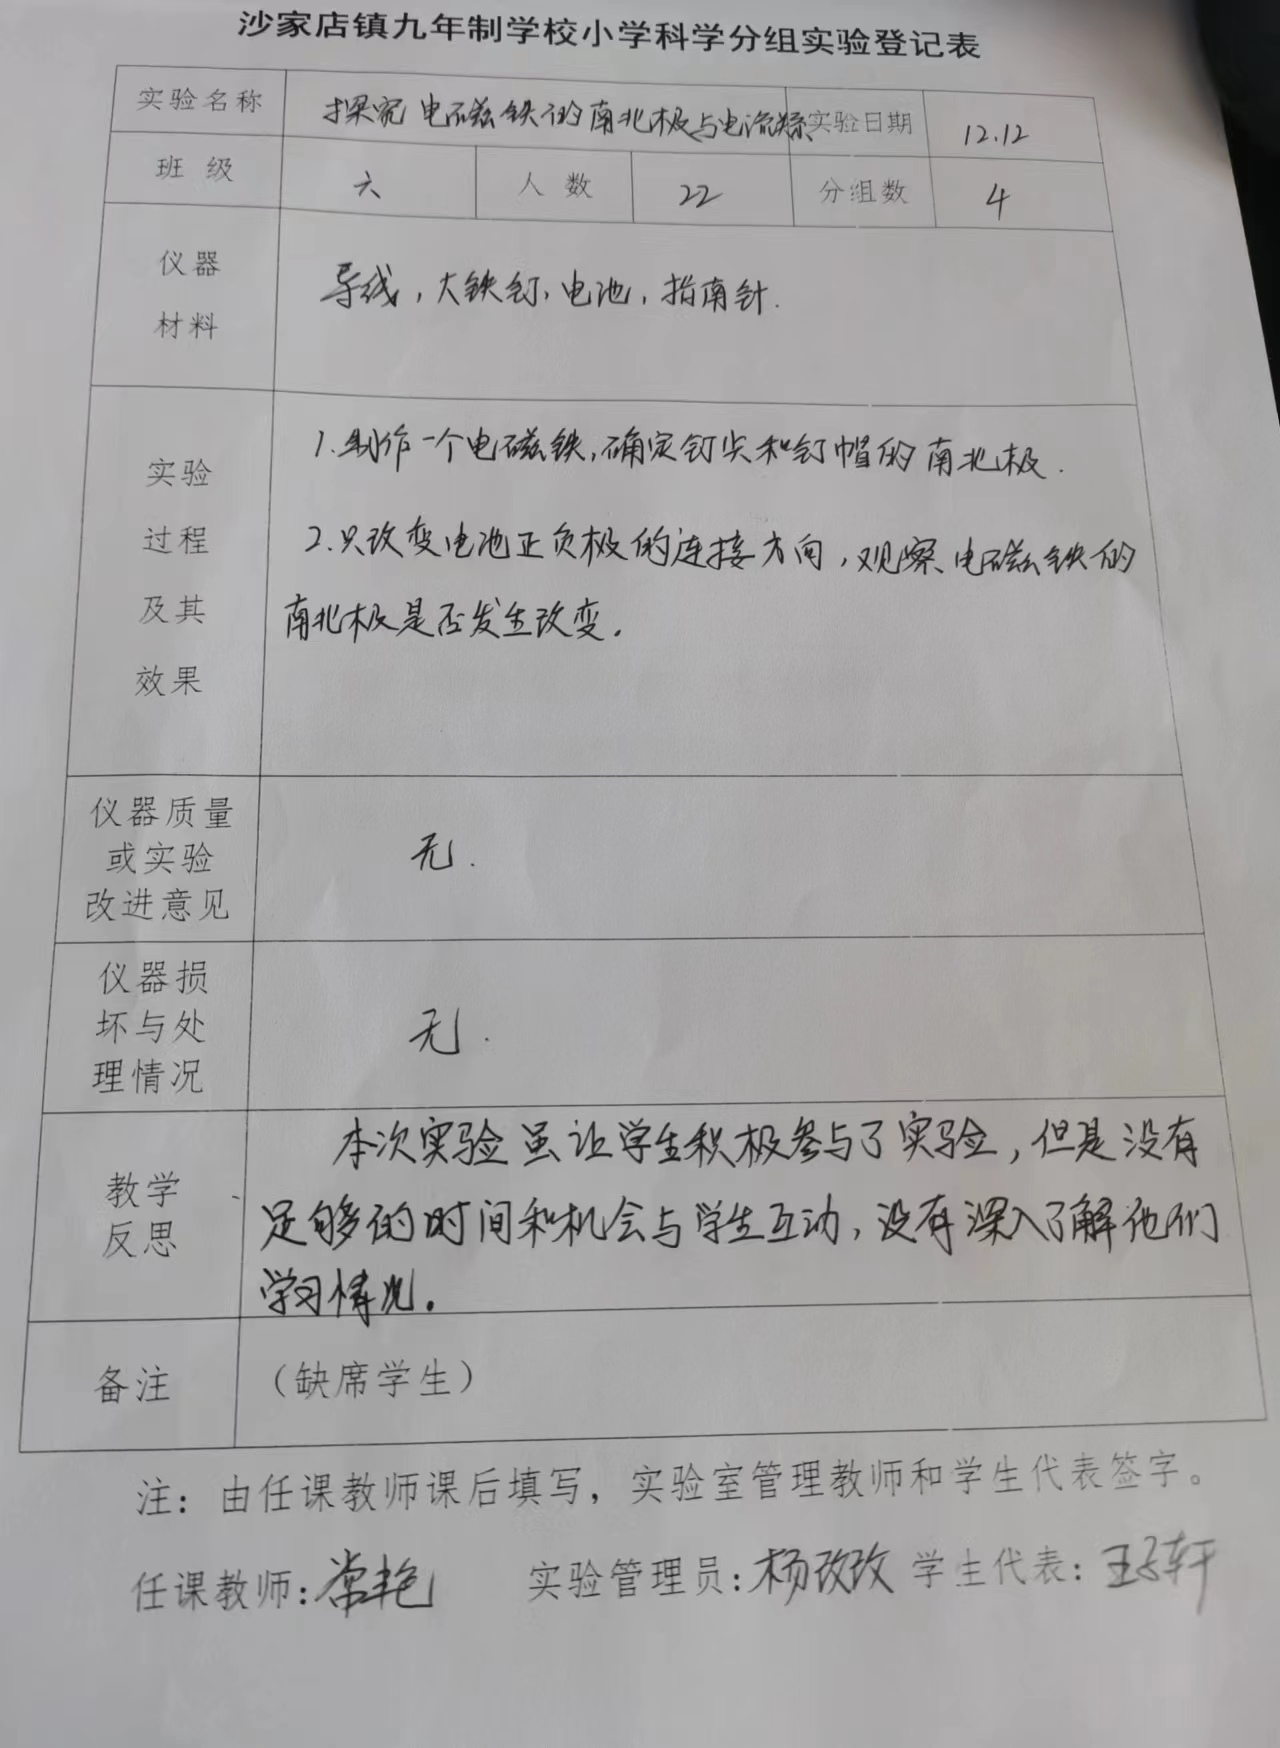 沙家店镇九年制学校小学科学分组实验登记表
实验名称 探究电磁铁的南北极与电流关系 实验日期 12.12
班级 六 人数 22 分组数 4
仪器
材料
导线，大铁钉，电池，指南针.
实验
过程
及其
效果
1.制作一个电磁铁,确定钉尖和钉帽的南北极.
2.只改变电池正负极的连接方向，观察电磁铁的
南北极是否发生改变.
仪器质量
或实验
改进意见
无.
仪器损
坏与处
理情况
无.
教学
反思
本次实验虽让学生积极参与了实验，但是没有
足够的时间和机会与学生互动，没有深入了解他们
学习情况.
备注 （缺席学生）
注：由任课教师课后填写，实验室管理教师和学生代表签字。
任课教师:常艳 实验管理员:杨改改 学生代表:王子轩